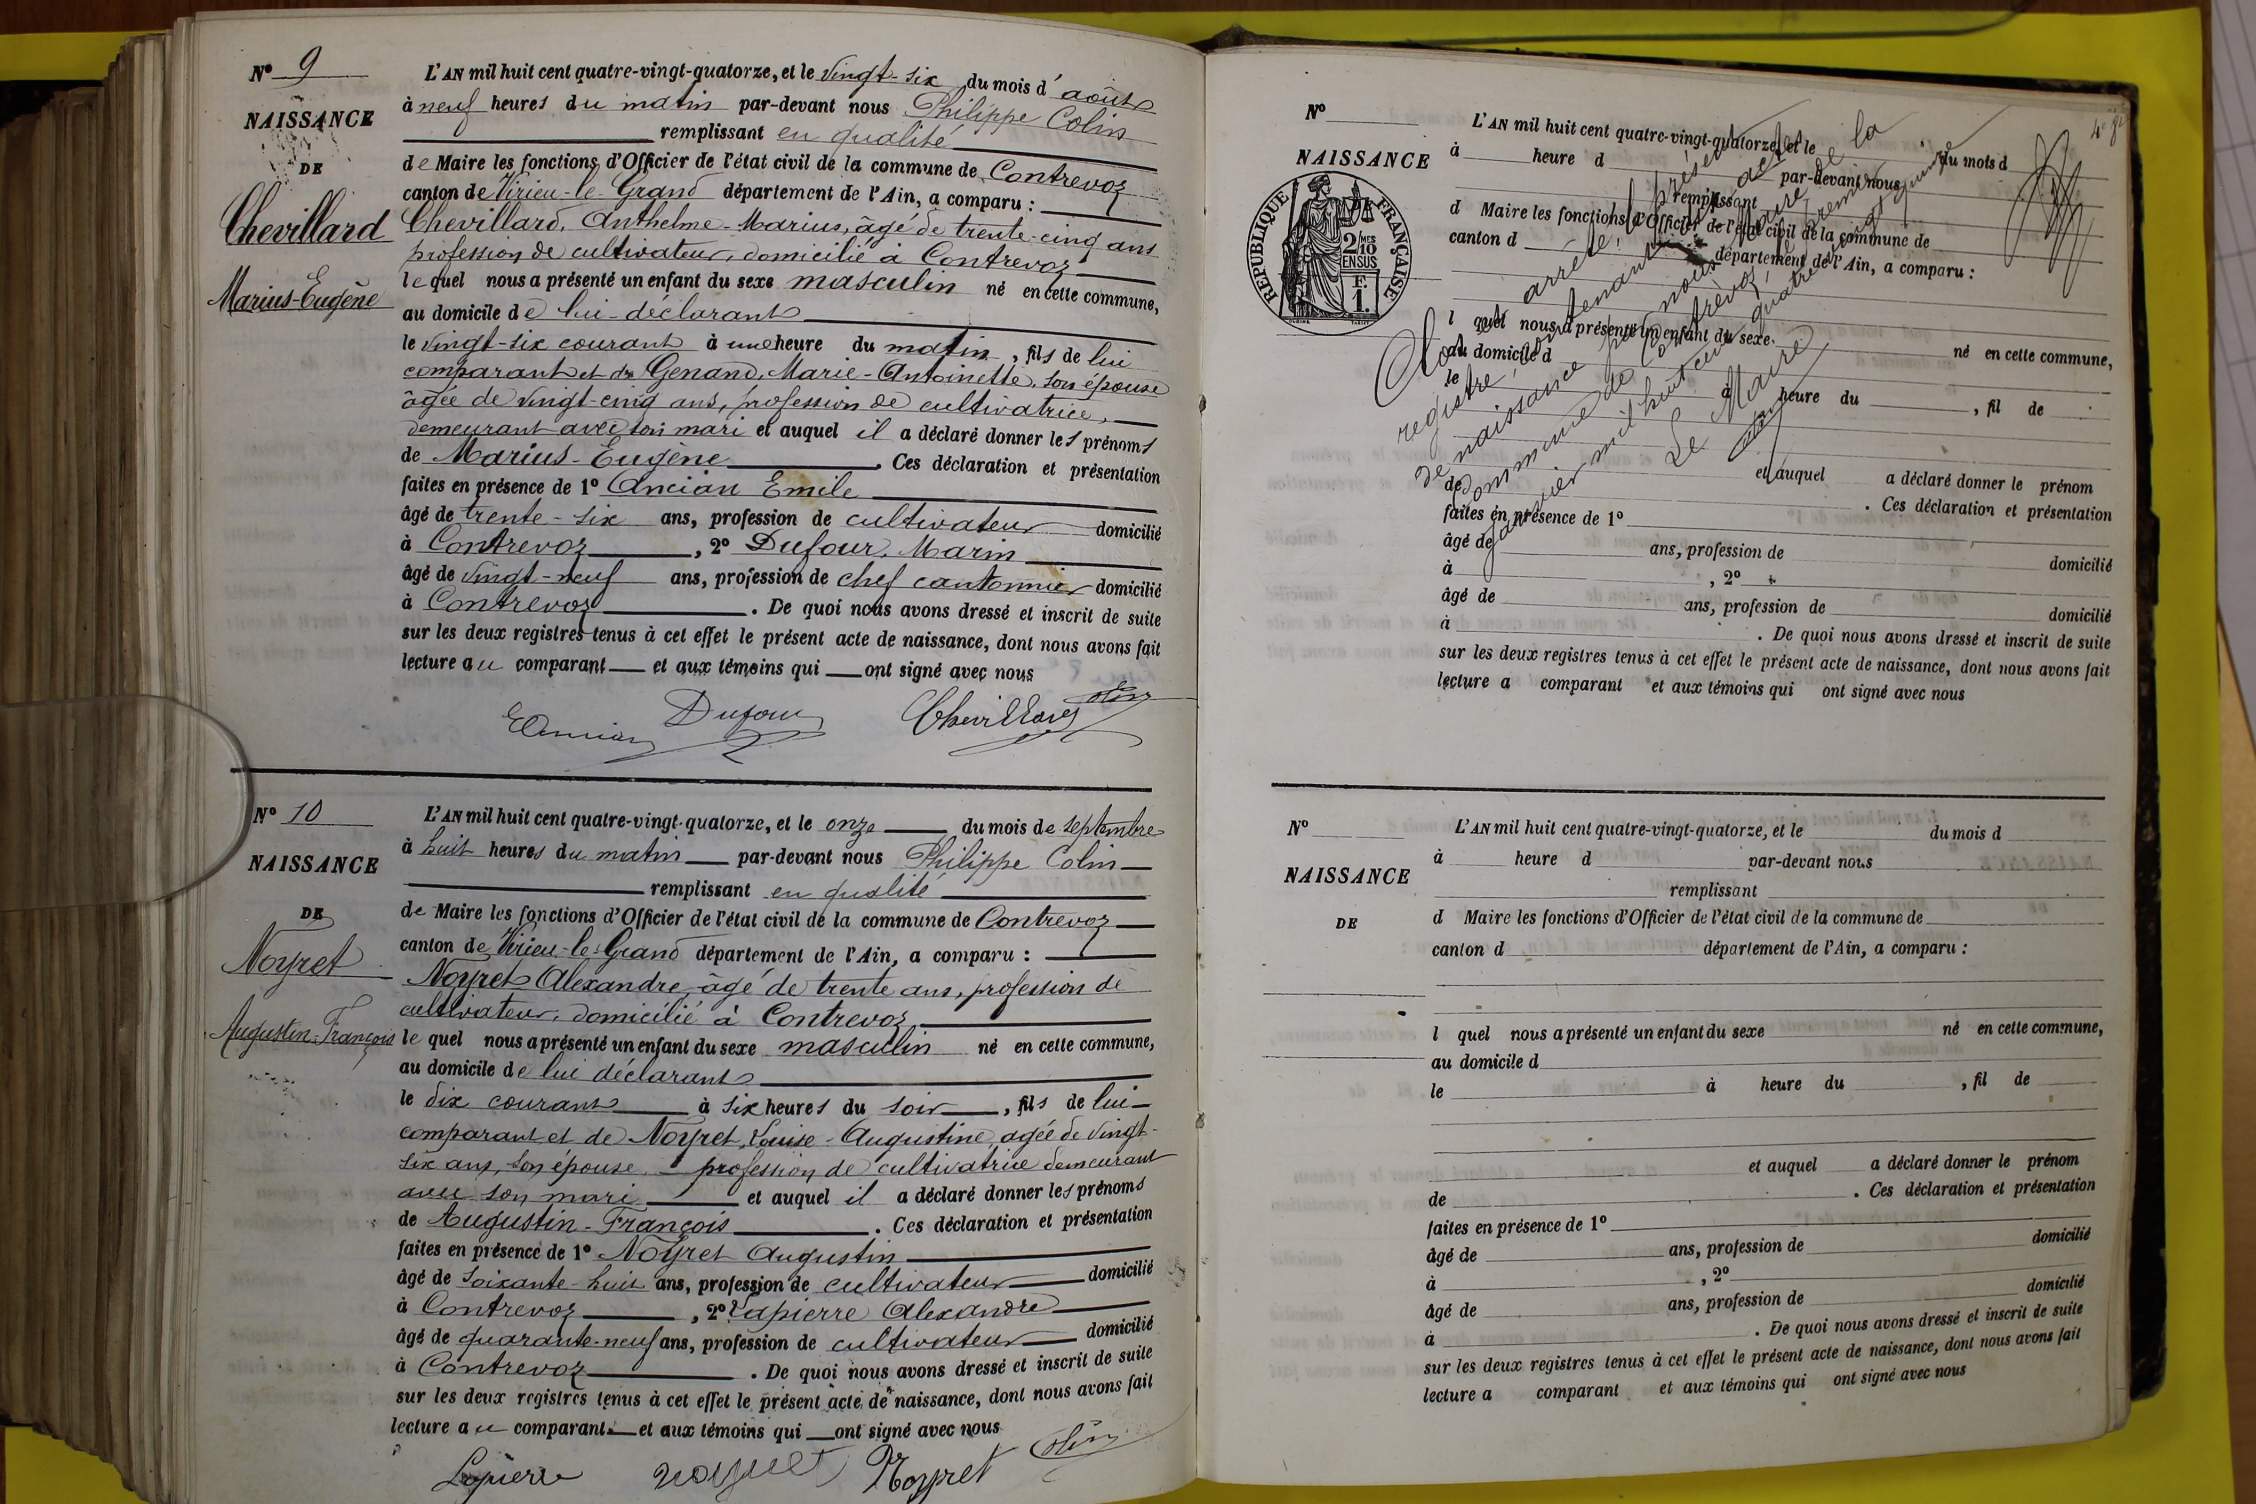 N° 9
NAISSANCE
DE
Chevillard
Marius-Eugène
L'AN mil huit cent quatre-vingt-quatorze, et le vingt-six du mois d'août
à neuf heures du matin par-devant nous Philippe Colin
remplissant en qualité
de Maire les fonctions d'Officier de l'état civil de la commune de Contrevoz
canton de Virieu-le-Grand département de l'Ain, a comparu :
Chevillard, Anthelme-Marius, âgé de trente-cinq ans
profession de cultivateur, domicilié à Contrevoz
lequel nous a présenté un enfant du sexe masculin né en cette commune,
au domicile de lui-déclarant
le vingt-six courant à une heure du matin, fils de lui
comparant et de Genand, Marie-Antoinette, son épouse
âgée de vingt-cinq ans, profession de cultivatrice,
demeurant avec son mari et auquel il a déclaré donner les prénoms
de Marius-Eugène. Ces déclaration et présentation
faites en présence de 1° Ancian Emile
âgé de trente-six ans, profession de cultivateur domicilié
à Contrevoz, 2° Dufour, Marin
âgé de vingt-neuf ans, profession de chef cantonnier domicilié
à Contrevoz. De quoi nous avons dressé et inscrit de suite
sur les deux registres tenus à cet effet le présent acte de naissance, dont nous avons fait
lecture au comparant et aux témoins qui ont signé avec nous
EAncian Dufour Chevillard Colin
N° 10
NAISSANCE
DE
Noyret
Augustin-François
L'AN mil huit cent quatre-vingt-quatorze, et le onze du mois de septembre
à huit heures du matin par-devant nous Philippe Colin
remplissant en qualité
de Maire les fonctions d'Officier de l'état civil de la commune de Contrevoz
canton de Virieu-le-Grand département de l'Ain, a comparu :
Noyret Alexandre, âgé de trente ans, profession de
cultivateur, domicilié à Contrevoz
lequel nous a présenté un enfant du sexe masculin né en cette commune,
au domicile de lui déclarant
le dix courant à six heures du soir, fils de lui
comparant et de Noyret, Louise-Augustine, agée de vingt-
six ans, son épouse profession de cultivatrice demeurant
avec son mari et auquel il a déclaré donner les prénoms
de Augustin-François. Ces déclaration et présentation
faites en présence de 1° Noyret Augustin
âgé de soixante-huit ans, profession de cultivateur domicilié
à Contrevoz, 2° Lapierre Alexandre
âgé de quarante-neuf ans, profession de cultivateur domicilié
à Contrevoz. De quoi nous avons dressé et inscrit de suite
sur les deux registres tenus à cet effet le présent acte de naissance, dont nous avons fait
lecture au comparant et aux témoins qui ont signé avec nous
Lapierre Noyret Noyret Colin
N°
NAISSANCE
RÉPUBLIQUE FRANÇAISE
2/10 MES
EN SUS
F.
1.
L'AN mil huit cent quatre-vingt-quatorze, et le du mois d
à heure d par-devant nous
remplissant
d Maire les fonctions d'Officier de l'état civil de la commune de
canton d département de l'Ain, a comparu :
l quel nous a présenté un enfant du sexe né en cette commune,
au domicile d
le à heure du , fil de
et auquel a déclaré donner le prénom
de . Ces déclaration et présentation
faites en présence de 1°
âgé de ans, profession de domicilié
à , 2°
âgé de ans, profession de domicilié
à . De quoi nous avons dressé et inscrit de suite
sur les deux registres tenus à cet effet le présent acte de naissance, dont nous avons fait
lecture a comparant et aux témoins qui ont signé avec nous
Clos et arrêté le présent
registre, contenant actes
de naissance par nous Maire de la
Commune de Contrevoz, le premier
janvier mil huit cent quatre vingt quinze
Le Maire
Colin
N°
NAISSANCE
DE
L'AN mil huit cent quatre-vingt-quatorze, et le du mois d
à heure d par-devant nous
remplissant
d Maire les fonctions d'Officier de l'état civil de la commune de
canton d département de l'Ain, a comparu :
l quel nous a présenté un enfant du sexe né en cette commune,
au domicile d
le à heure du , fil de
et auquel a déclaré donner le prénom
de . Ces déclaration et présentation
faites en présence de 1°
âgé de ans, profession de domicilié
à , 2°
âgé de ans, profession de domicilié
à . De quoi nous avons dressé et inscrit de suite
sur les deux registres tenus à cet effet le présent acte de naissance, dont nous avons fait
lecture a comparant et aux témoins qui ont signé avec nous